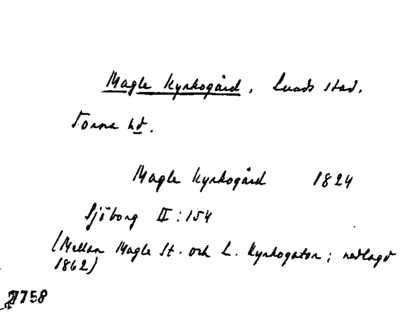 Magle Kyrkogård, Lunds stad.
Torna hd.
Magle Kyrkogård 1824
Sjöborg II:154
(Mellan Magle St. och L. Kyrkogatan; nedlagd
1862)
7758